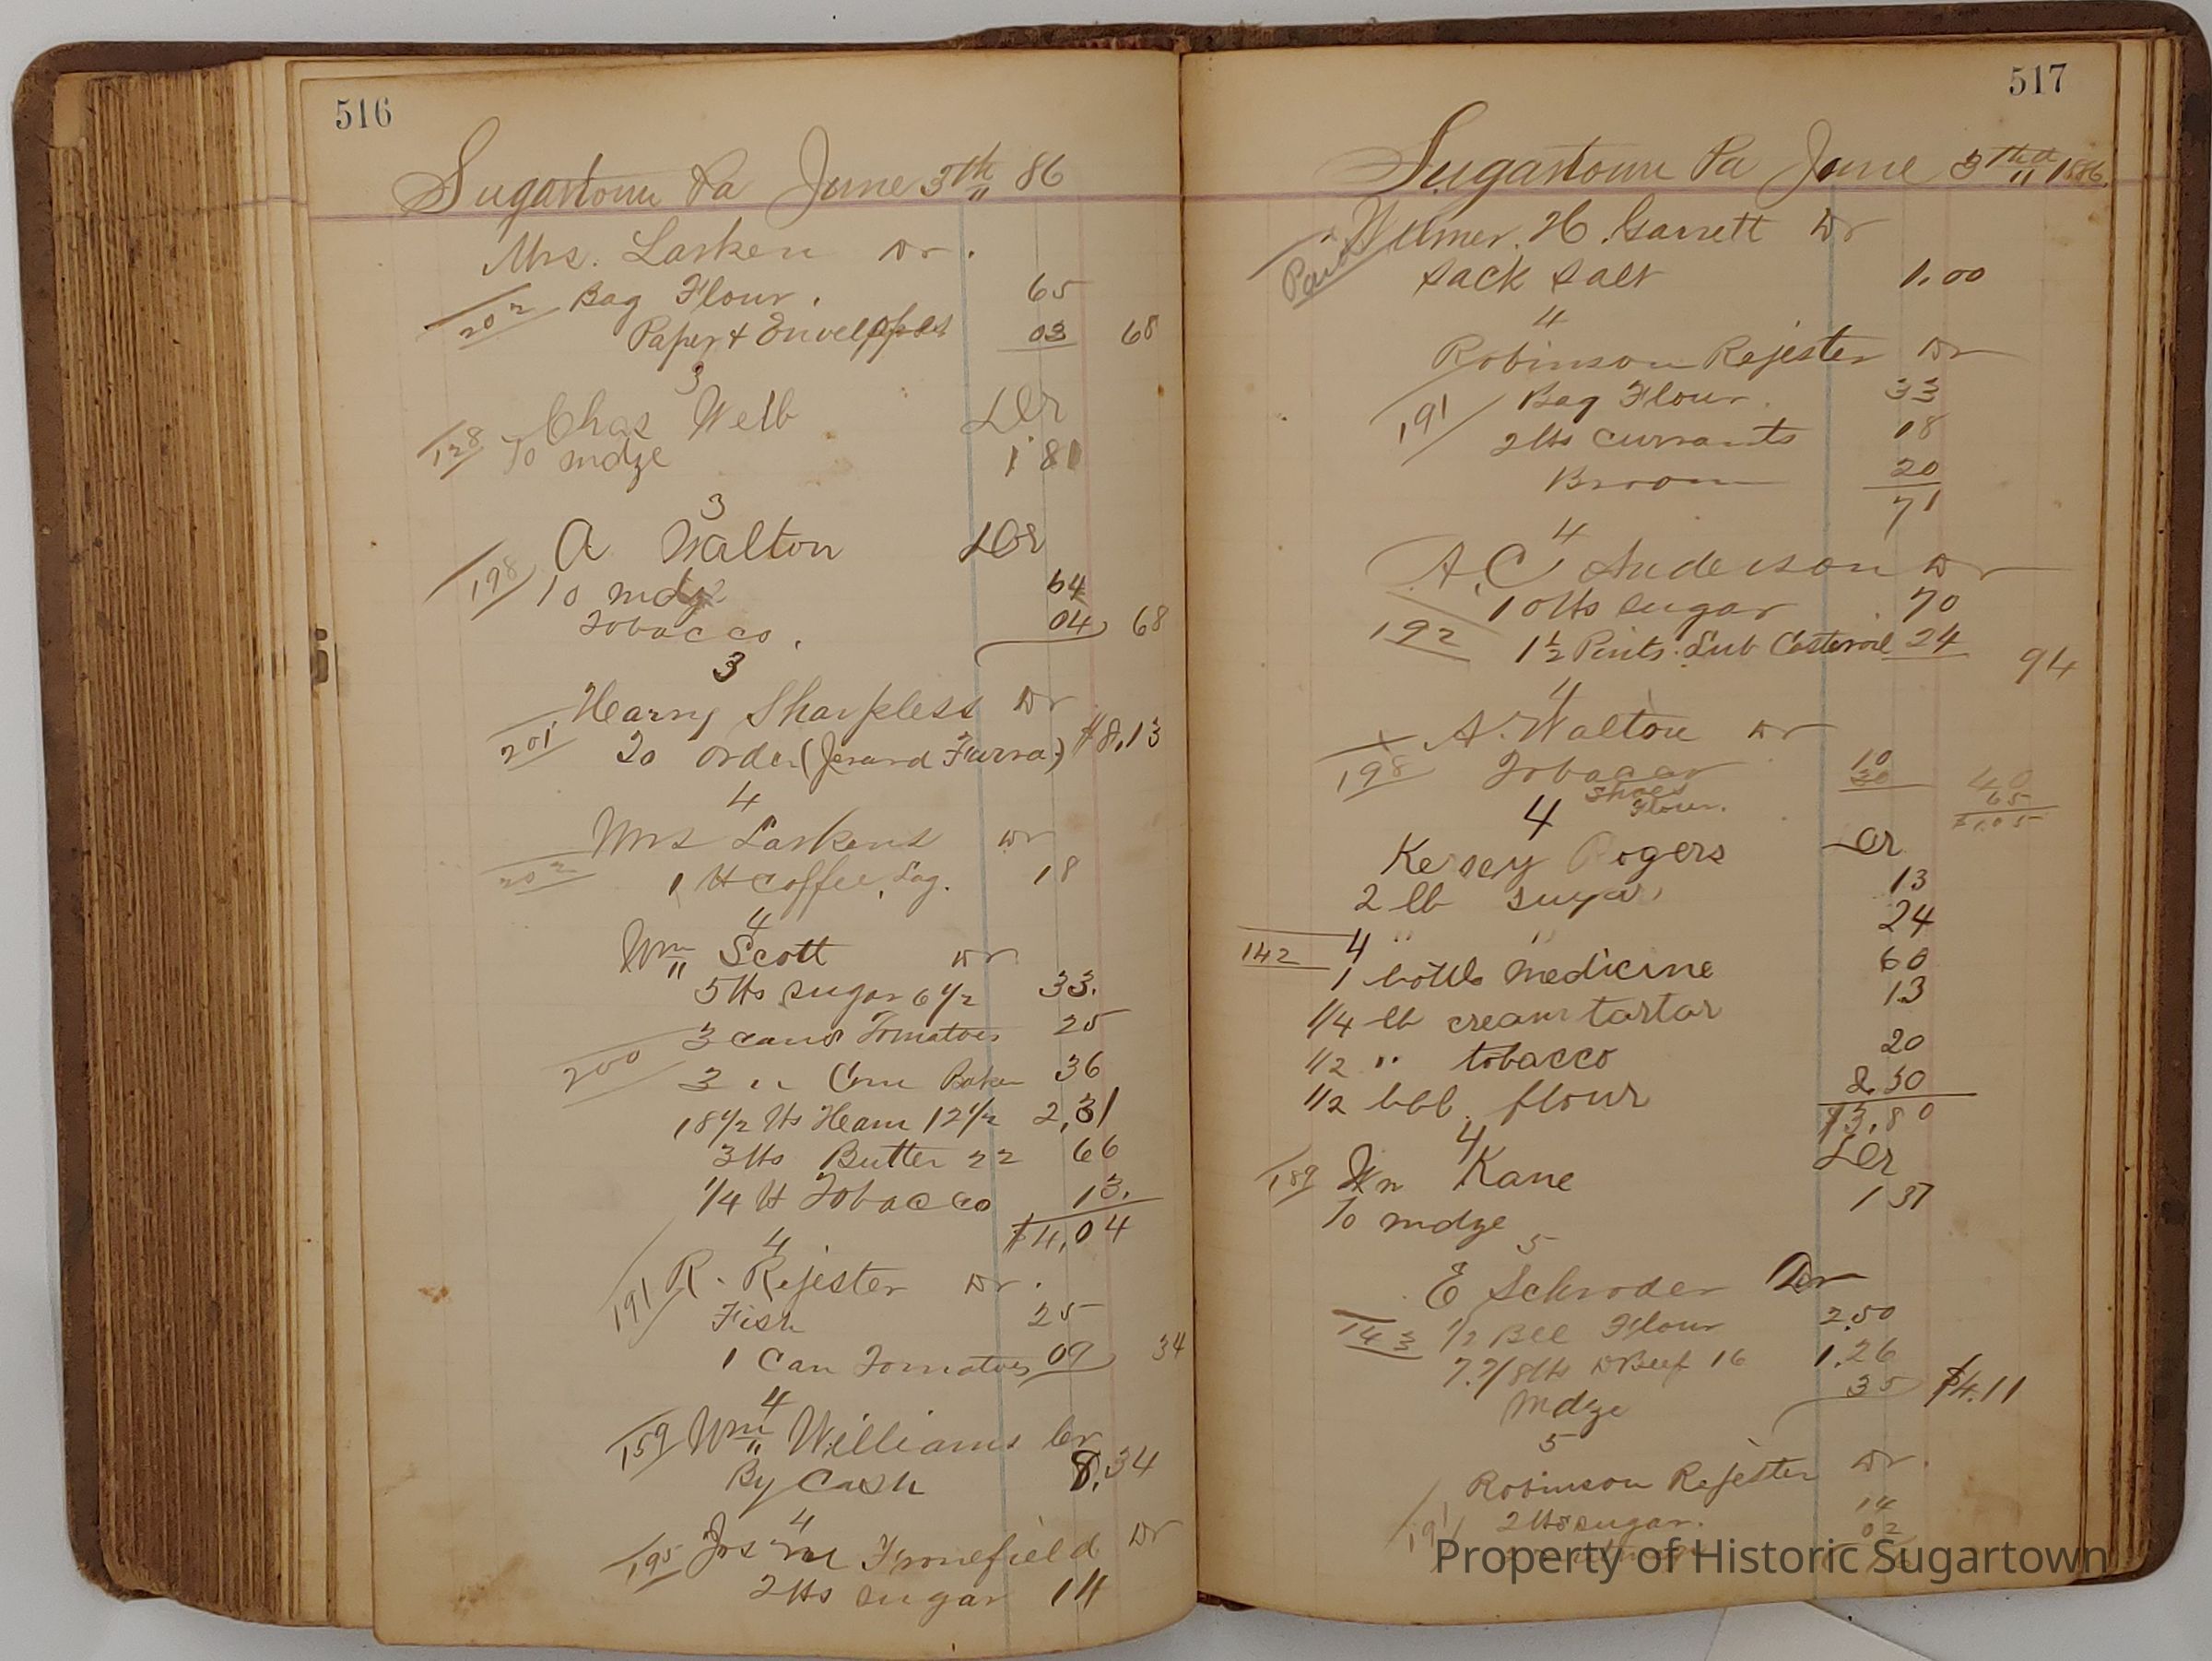 516
Sugartown Pa June 3th 86
Mrs. Larken Dr.
202 Bag Flour. 65
Paper & Envelopes 03 68
3
128 Chas Welb Dr
To mdze 1 81
3
198 A Walton Dr
To mdze 64
Tobacco. 04 68
3
Harry Sharpless Dr
201 To order (Jerard Furra) $8,13
4
Mrs Larkens Dr
202 1 lb Coffee, Lag. 18
4
Wm Scott Dr
5 lbs sugar 6 1/2 33.
3 cans Tomatoes 25
200 3 " Corn Baker 36
18 1/2 lbs Ham 12 1/2 2,31
3 lbs Butter 22 66
1/4 lb Tobacco 13.
$4,04
4
191 R. Rejester Dr.
Fish 25
1 Can Tomatoes 09 34
4
159 Wm Williams Cr
By Cash 8.34
4
195 Jos M Fronefield Dr
2 lbs sugar 14
517
Sugartown Pa June 3th 1886.
Paid Wilmer. H. Garrett Dr
Sack Salt 1.00
4
Robinson Rejester Dr
191 Bag Flour. 33
2 lbs currants 18
Broom 20
71
4
A. C Anderson Dr
10 lbs sugar 70
192 1 1/2 Pints. Lub Casteroil 24 94
4
x A. Walton Dr
198 Tobacco 10
Shoes 30 40
Flour. 65
$1.05
4
Kersey Rogers Dr
2 lb sugar 13
142 4 " " 24
1 bottle medicine 60
1/4 lb cream tartar 13
1/2 " tobacco 20
1/2 bbl. flour 2.50
$3.80
4
189 Wm Kane Dr
To mdze 1 37
5
E Schroder Dr
143 1/2 Bbl Flour 2.50
7.7/8 lbs D Beef 16 1.26
Mdze 35 $4.11
5
Robinson Rejester Dr.
191 2 lbs sugar. 14
02
Property of Historic Sugartown